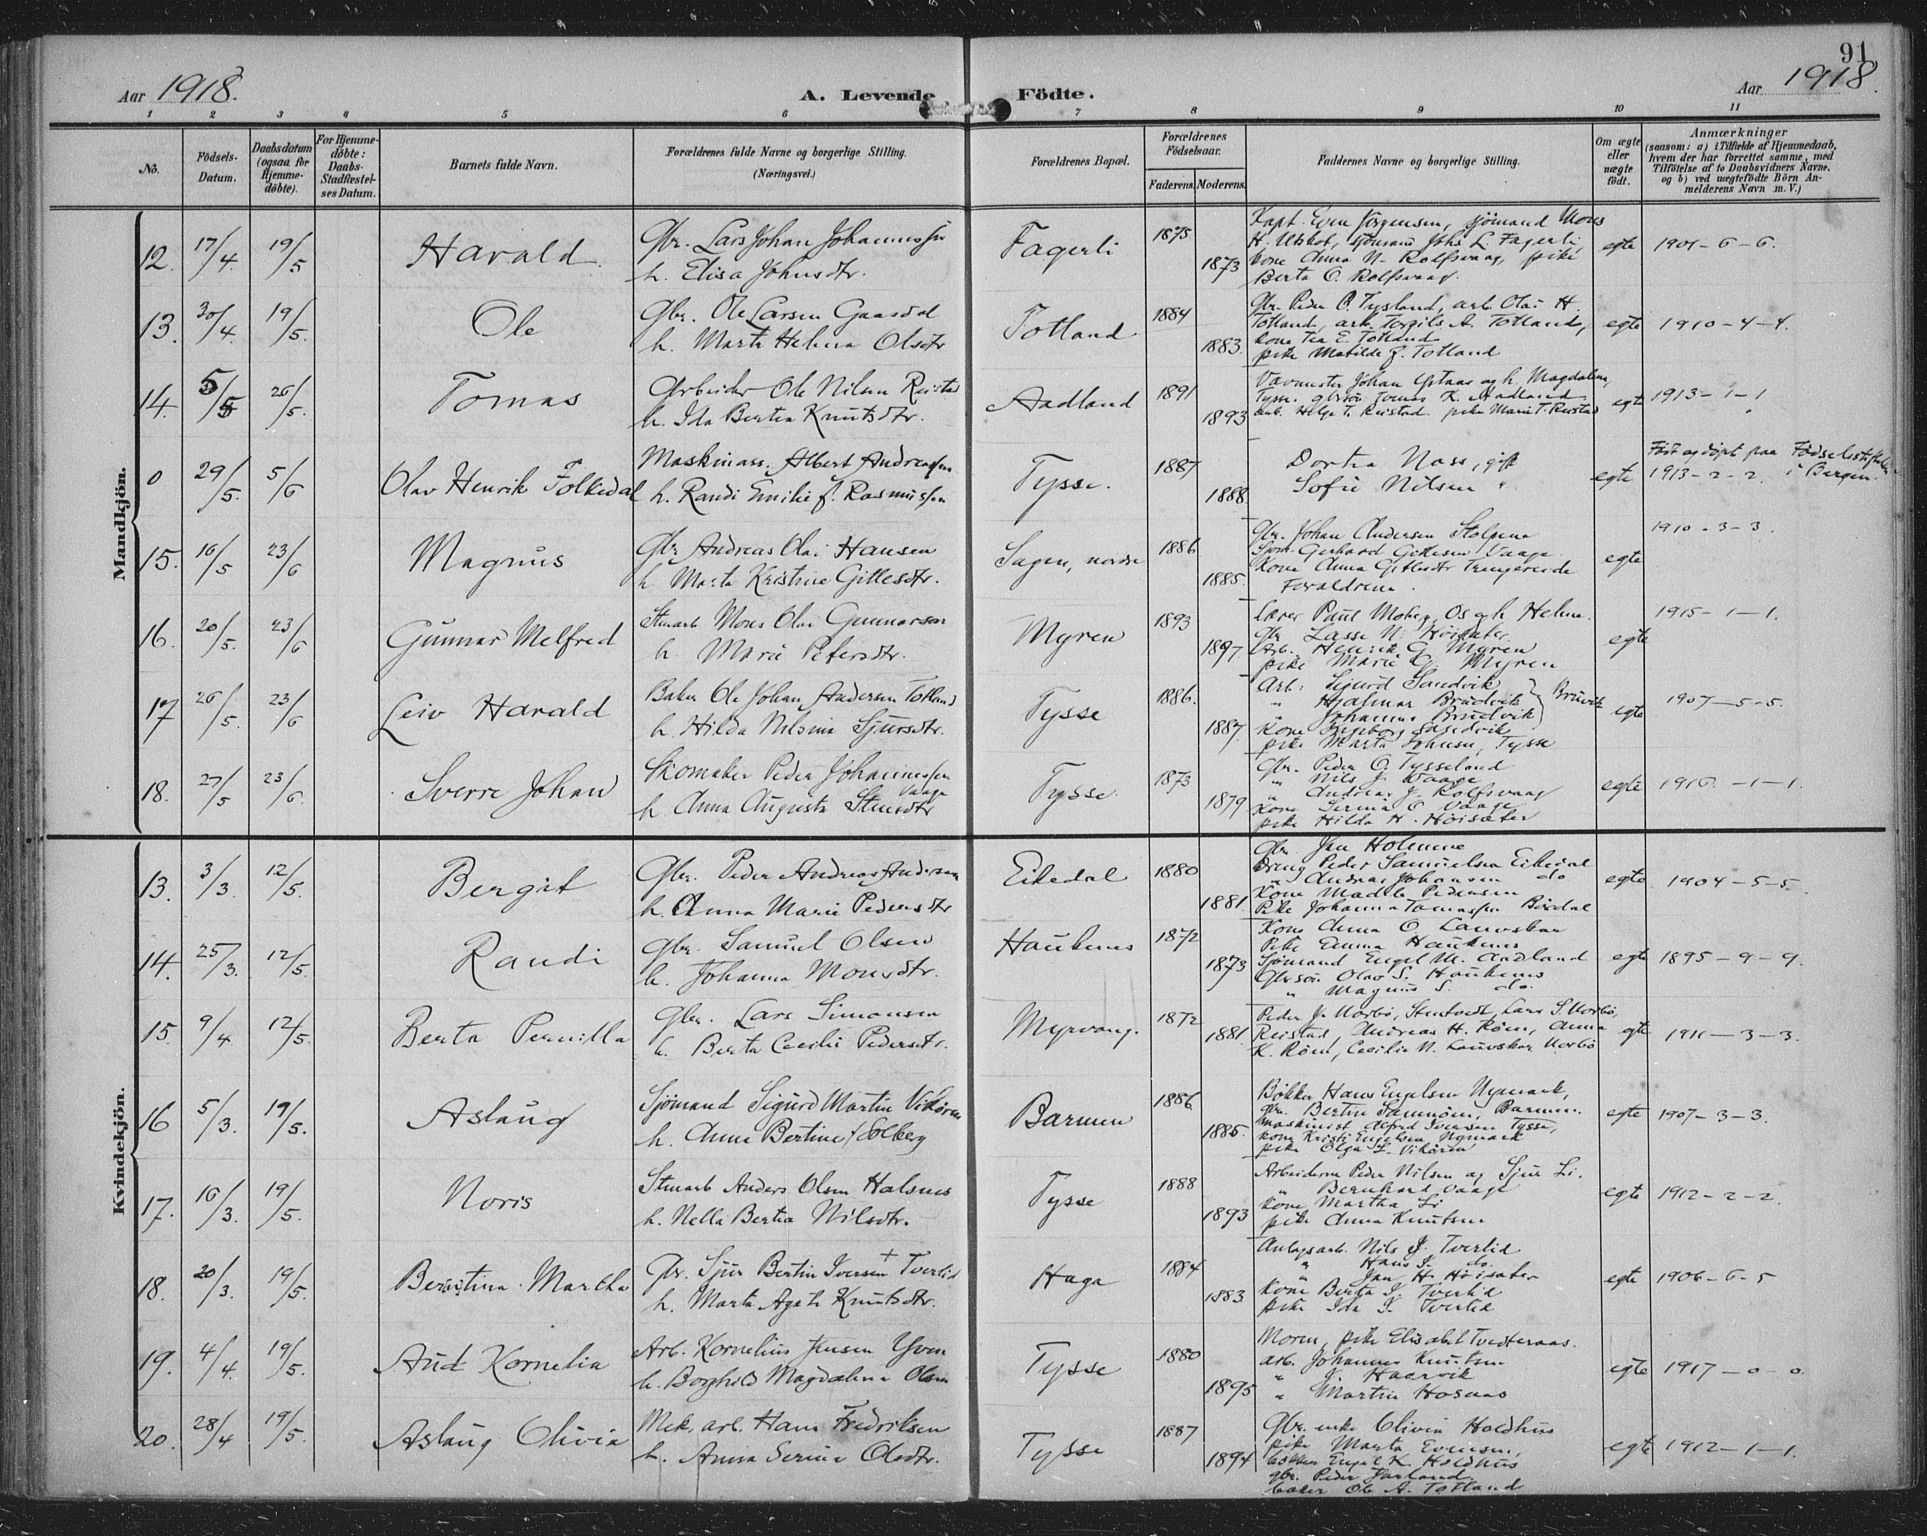 91
Aar 1918.
A. Levende Födte.
Aar 1918.
1 2 3 4 5 6 7 8 9 10 11
No.
Födsels-Datum.
Daabsdatum (ogsaa for Hjemmedöbte).
For Hjemmedöbte: Daabs-Stadfæstelses Datum.
Barnets fulde Navn.
Forældrenes fulde Navne og borgerlige Stilling.
(Næringsvei.)
Forældrenes Bopæl.
Forældrenes Födselsaar.
Faderens. Moderens.
Faddernes Navne og borgerlige Stilling.
Om ægte eller uægte födt.
Anmærkninger
(saasom: a) i Tilfælde af Hjemmedaab, hvem der har forrettet samme, med Tilföielse af to Daabsvidners Navne, og b) ved uægtefödte Börn Anmelderens Navn m. V.)
Mandkjön.
12. 17/4. 19/5 Harald
Gbr. Lars Johan Johannessen
h. Elisa Johnsdtr.
Fagerli 1875 1873
Kapt. Even Jörgensen, sjömand Mons
H. Utskot, sjömand Johs L. Fagerli,
kone Anna N. Rolfsvaag, pike
Berta O. Rolfsvaag.
egte 1901-6-6.
13. 30/4. 19/5. Ole
Gbr. Ole Larsen Gaasdal
h. Marta Helena Olsdtr
Totland 1884 1883.
Gbr. Peder O. Tysland, arb. Olai H.
Totland, arb. Torgils A. Totland,
kone Tea E. Totland
pike Matilde J. Totland
egte 1910-4-4.
14. 5/5 26/5. Tomas
Arbeider Ole Nilsen Reistad
h. Ida Bertea Knutsdtr.
Aadland 1891 1893
Vævmester Johan Ystaas og h. Magdalena,
Tysse. gbrsön Tomas K. Aadland
arb. Helge T. Reistad. pike Marie T. Reistad
egte 1913-1-1.
0 29/5. 5/6 Olav Henrik Folkedal
Maskinass. Albert Andreassen
h. Randi Emilie f. Rasmussen
Tysse. 1887 1888
Dortea Nass, gift
Sofie Nilsen "
egte
Født og døpt paa Fødselsstiftelsen
1913-2-2. i Bergen.
15. 16/5 23/6 Magnus
Gbr Andreas Olai Hansen
h. Marta Kristine Gitlesdtr.
Sagen, nordre 1886 1885.
Gbr. Johan Andersen Stolpena
Sjöm. Gerhard Gitlesen Vaage
Kone Anna Gitlesdtr Trengereide
Forældrene.
egte 1910-3-3.
16. 20/5. 23/6 Gunnar Melfred
Stuearb Mons Olai Gunnarson
h. Marie Petersdtr.
Myren 1893 1897.
Lærer Paul Moberg Os og h. Helene
Gbr Lasse N. Höisæter
Arb. Henrik G. Myren
pike Marie G. Myren
egte 1915-1-1.
17 26/5. 23/6 Leiv Harald
Baker Ole Johan Andersen Totland
h. Hilda Nilsine Sjursdtr.
Tysse 1886. 1887
Arb. Sigurd Sandvik
" Hjalmar Brudvik } Bruvik
" Johannes Brudvik
Kone Ingeborg Sandvik
pike Marta Johnsen, Tysse
egte 1907-5-5.
18. 27/5 23/6. Sverre Johan
Skomaker Peder Johannessen Vaage
h. Anna Augusta Stensdtr
Tysse. 1873 1879
Gbr. Peder O. Tysseland
" Nils J. Vaage
" Andreas J. Rolfsvaag
Kone Serina O. Vaage
pike Hilda H. Höisæter
egte 1916.-1-1.
Kvindekjön.
13. 3/3. 12/5. Bergit
Gbr. Peder Andreas Andersen
h. Anna Marie Pedersdtr
Eikedal 1880 1881
Gbr. Jan Holmene
Dreng Peder Samuelsen Eikedal
" Andreas Johansen do
Kone Madela Pedersen
Pike Johanna Tomassen Birdal
egte 1904-5-5.
14. 25/3. 12/5. Randi
Gbr. Samuel Olsen
h. Johanna Monsdtr.
Haukenes 1872 1873
Kone Anna O. Lauvskar
Pike Emma Haukenes
Sjömand Engel M. Aadland
Gbrsön Olav S. Haukenes
" Magnus S. do.
egte 1895-9-9.
15. 9/4 12/5. Berta Pernilla
Gbr. Lars Simonsen
h. Berta Cecilie Pedersdtr.
Myrvang. 1872 1881
Peder J. Norbö, Stentvedt, Lars S. Norbö,
Reistad, Andreas H. Röen, Anna
K. Röen, Cecilie N. Lauvskar Norbö
egte 1911-3-3.
16 5/3. 19/5. Aslaug
Sjömand Sigurd Martin Vikören
h. Anna Bertine f Solberg
Barmen 1886 1885.
Bökker Hans Engelsen Nymark,
gbr. Bertin Samnöen, Barmen.
Maskinist Alfred Iversen Tysse,
kone Kristi Engelsen Nymark
pike Olga L. Vikören
egte 1907-3-3.
17. 16/3. 19/5. Noris
Stuearb Anders Olsen Halsnes
h. Nella Bertea Nilsdtr.
Tysse 1888 1893
Arbeiderne Peder Nilsen og Sjur Li.
" Bernhard Vaage
kone Martha Li
pike Anna Knutsen
egte 1912-2-2.
18. 20/3. 19/5. Berntina Martha
Gbr. Sjur Bertin Iversen + Tverlid
h. Marta Agate Knutsdtr.
Haga 1884 1883
Anlegsarb. Nils J. Tverlid
" Hans J. do.
" Jan H. Höisæter
Kone Berta J. Tverlid
pike Ida J. Tverlid
egte 1906-6-5
19. 4/4. 19/5. Aud Kornelia
Arb. Kornelius Jensen Yven
h. Borghild Magdalena Olsen
Tysse 1880 1895
Moren, pike Elisabet Tvedteraas.
arb. Johannes Knutsen
" J. Haarvik
" Martin Hosnas
egte 1917-0-0.
20. 28/4 19/5. Aslaug Olivia
Mek. arb. Hans Fredriksen
h. Anna Serine Olsdtr.
Tysse 1887 1894
Gbr. enke Olivia Holdhus
pike Marta Evensen,
bökker Engel K. Holdhus
gbr. Peder Jarland.
baker Ole A. Totland
egte 1912-1-1.